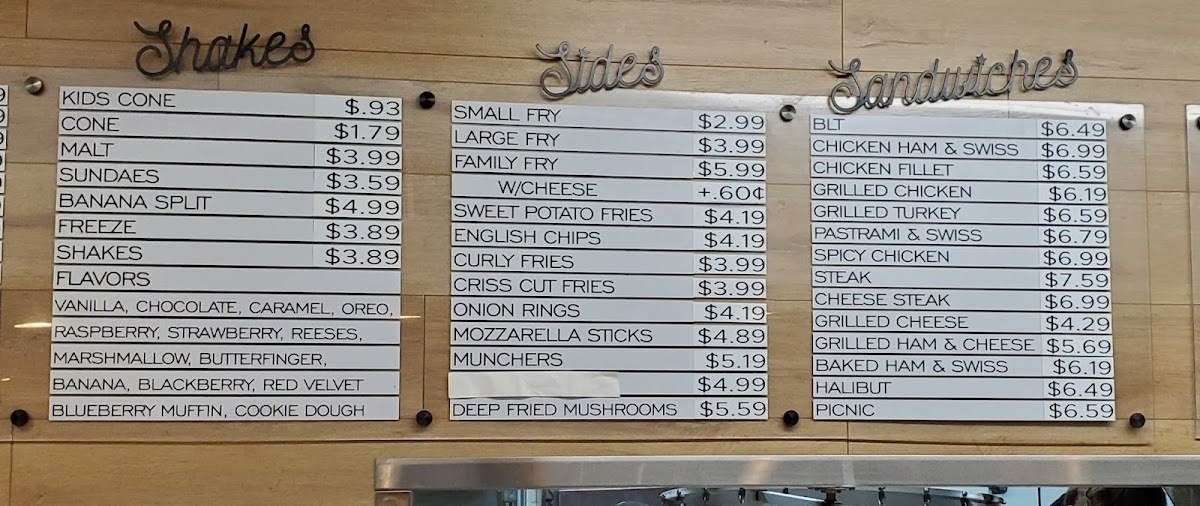 Shakes
KIDS CONE $.93
CONE $1.79
MALT $3.99
SUNDAES $3.59
BANANA SPLIT $4.99
FREEZE $3.89
SHAKES $3.89
FLAVORS
VANILLA, CHOCOLATE, CARAMEL, OREO,
RASPBERRY, STRAWBERRY, REESES,
MARSHMALLOW, BUTTERFINGER,
BANANA, BLACKBERRY, RED VELVET
BLUEBERRY MUFFIN, COOKIE DOUGH
Sides
SMALL FRY $2.99
LARGE FRY $3.99
FAMILY FRY $5.99
W/CHEESE +.60¢
SWEET POTATO FRIES $4.19
ENGLISH CHIPS $4.19
CURLY FRIES $3.99
CRISS CUT FRIES $3.99
ONION RINGS $4.19
MOZZARELLA STICKS $4.89
MUNCHERS $5.19
$4.99
DEEP FRIED MUSHROOMS $5.59
Sandwiches
BLT $6.49
CHICKEN HAM & SWISS $6.99
CHICKEN FILLET $6.59
GRILLED CHICKEN $6.19
GRILLED TURKEY $6.59
PASTRAMI & SWISS $6.79
SPICY CHICKEN $6.99
STEAK $7.59
CHEESE STEAK $6.99
GRILLED CHEESE $4.29
GRILLED HAM & CHEESE $5.69
BAKED HAM & SWISS $6.19
HALIBUT $6.49
PICNIC $6.59